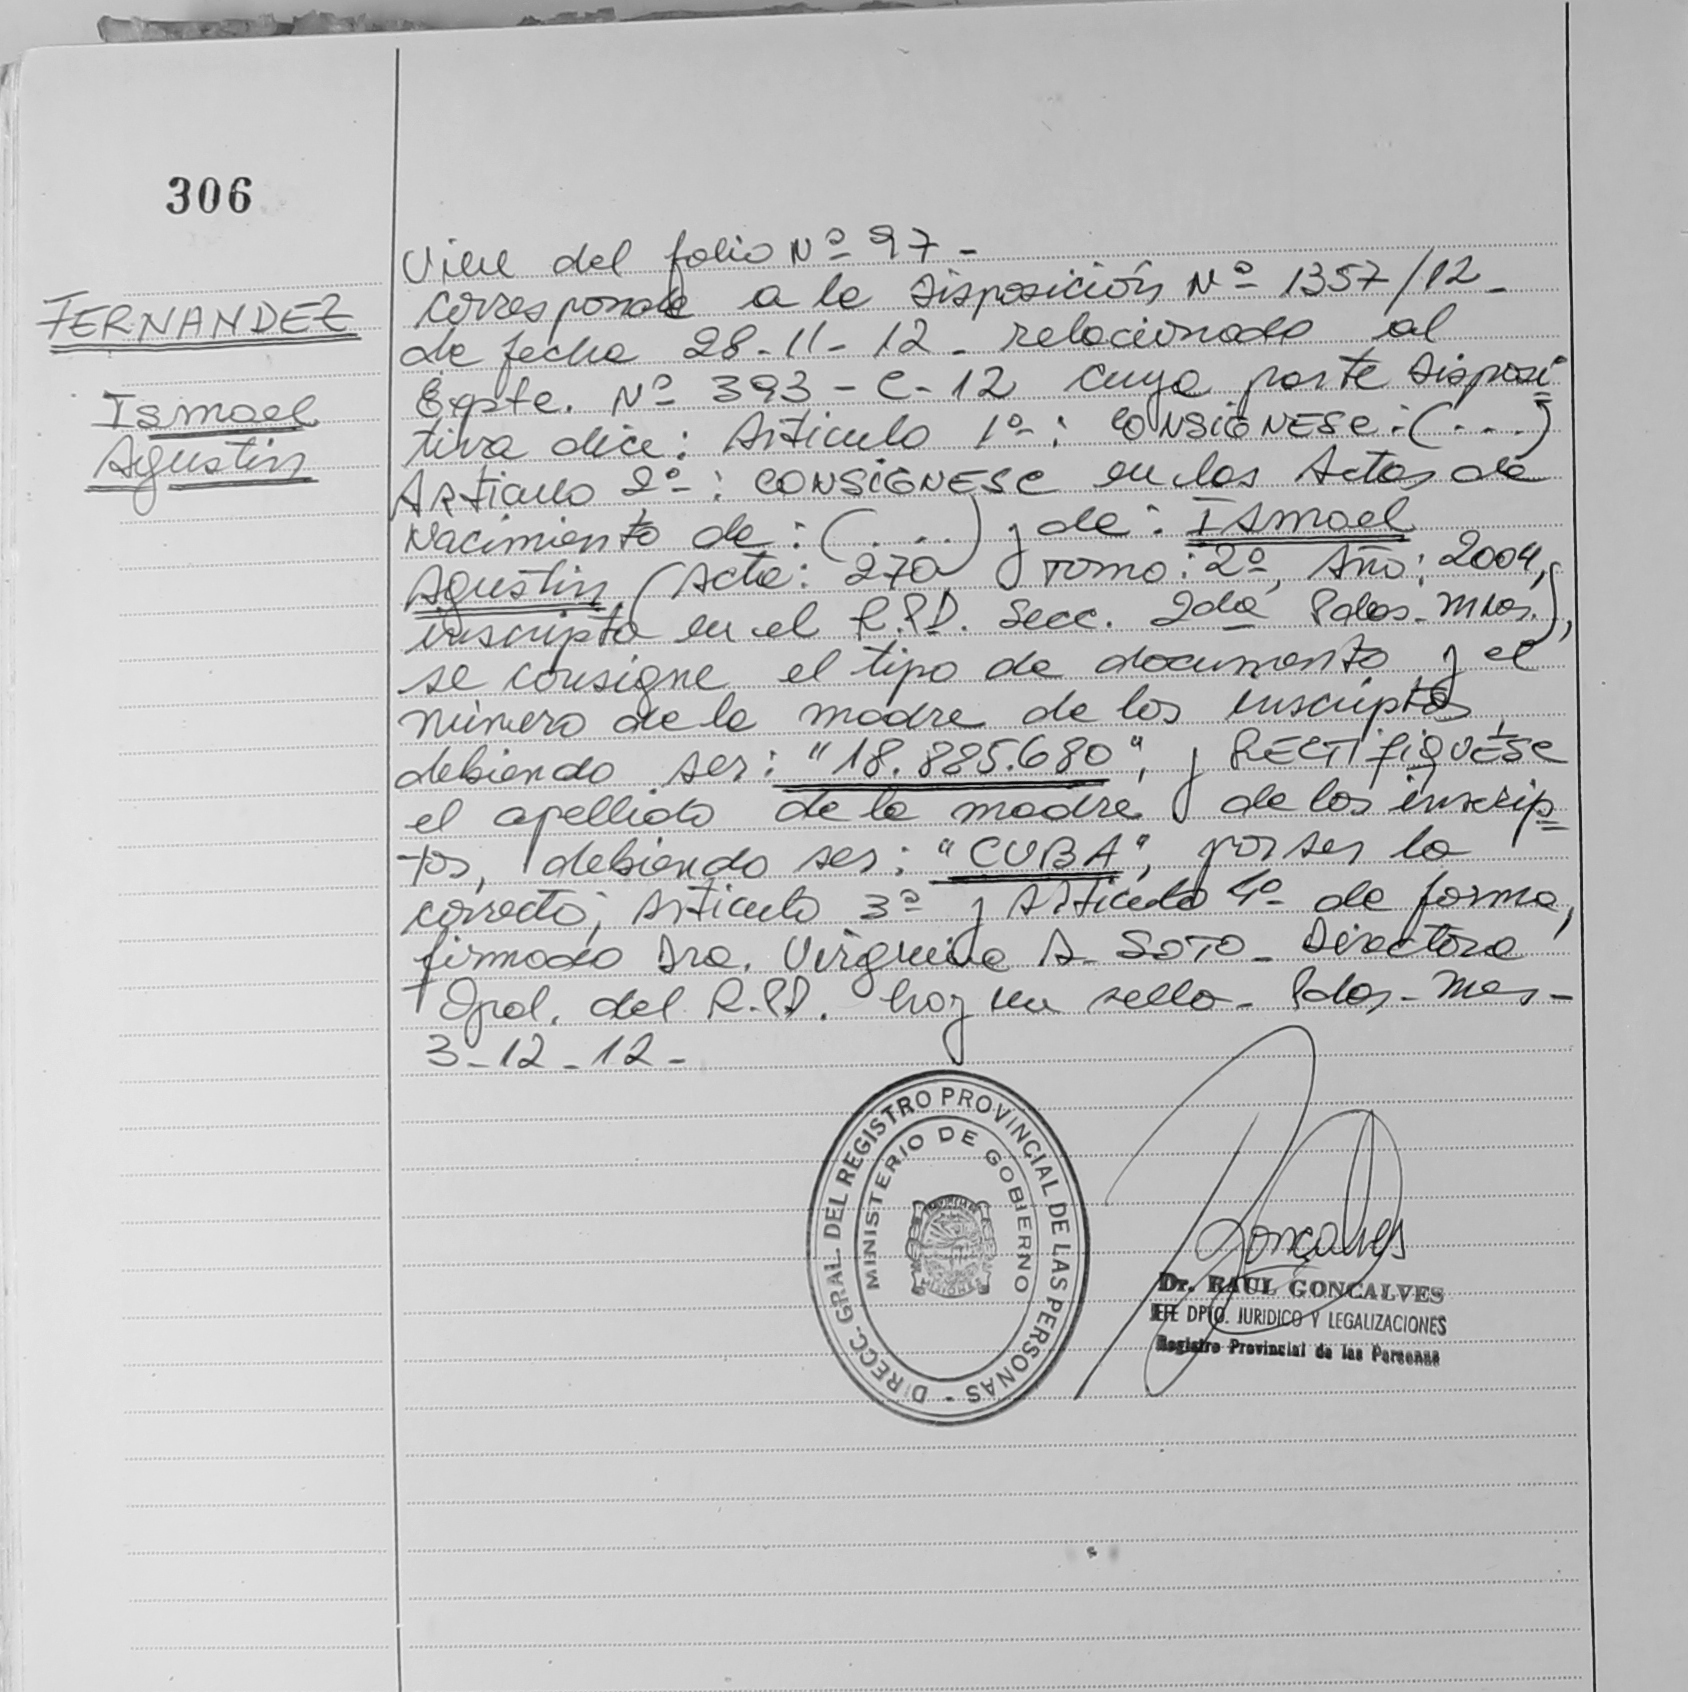 306
FERNANDEZ
Ismael
Agustin
Viene del folio Nº 97 -
corresponde a la Disposición Nº 1357/12 -
de fecha 28-11-12 - relacionado al
Expte. Nº 393-C-12 cuya parte Disposi
tiva dice: Artículo 1º: CONSIGNESE: (...)
ARTICULO 2º: CONSIGNESE en las Actas de
Nacimiento de: (....) y de: ISmael
Agustin (Acta: 270 Tomo: 2º, Año: 2004,
inscripta en el R.P.P. Secc. 2da Pdas-Mnes.),
se consigne el tipo de documento y el
número de la madre de los inscriptos
debiendo ser: "18.885.680", y RECTIFIQUESE
el apellido de la madre de los inscrip
tos, debiendo ser: "CUBA", por ser lo
correcto; Artículo 3º y Artículo 4º de forma,
firmado Dra. Virginia A. SOTO - Directora
Gral. del R.P.P. hay un sello - Pdas-Mnes-
3-12-12-
DIRECC. GRAL. DEL REGISTRO PROVINCIAL DE LAS PERSONAS -
MINISTERIO DE GOBIERNO
Goncalves
Dr. RAUL GONCALVES
JEFE DPTO. JURIDICO Y LEGALIZACIONES
Registro Provincial de las Personas